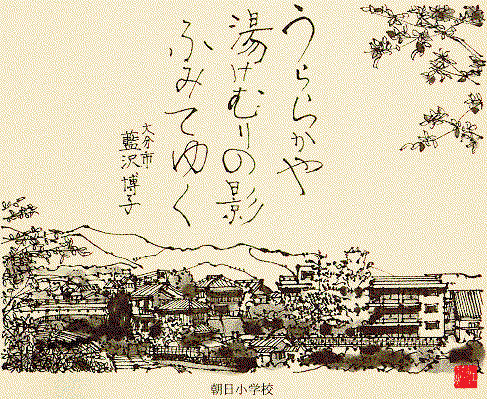 うららかや
湯けむりの影
ふみてゆく
大分市
藍沢博子
朝日小学校